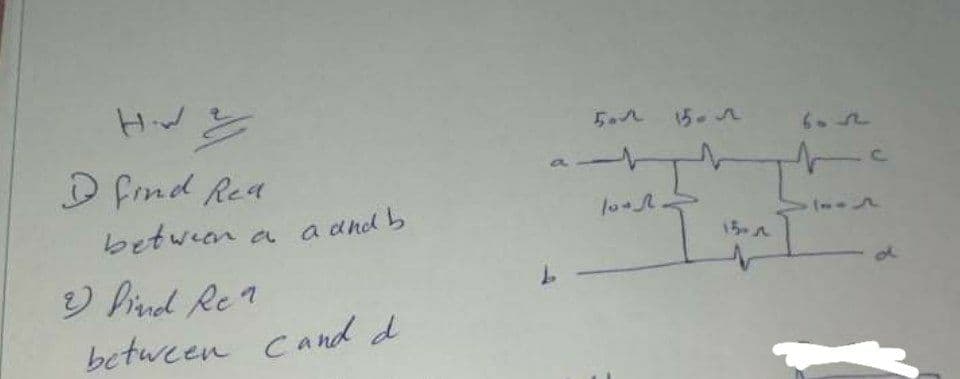 H.W 2
1) find Req
between a a and b
2) Find Req
between c and d
50Ω 150Ω 60Ω
a c
100Ω 100Ω
150Ω
b d